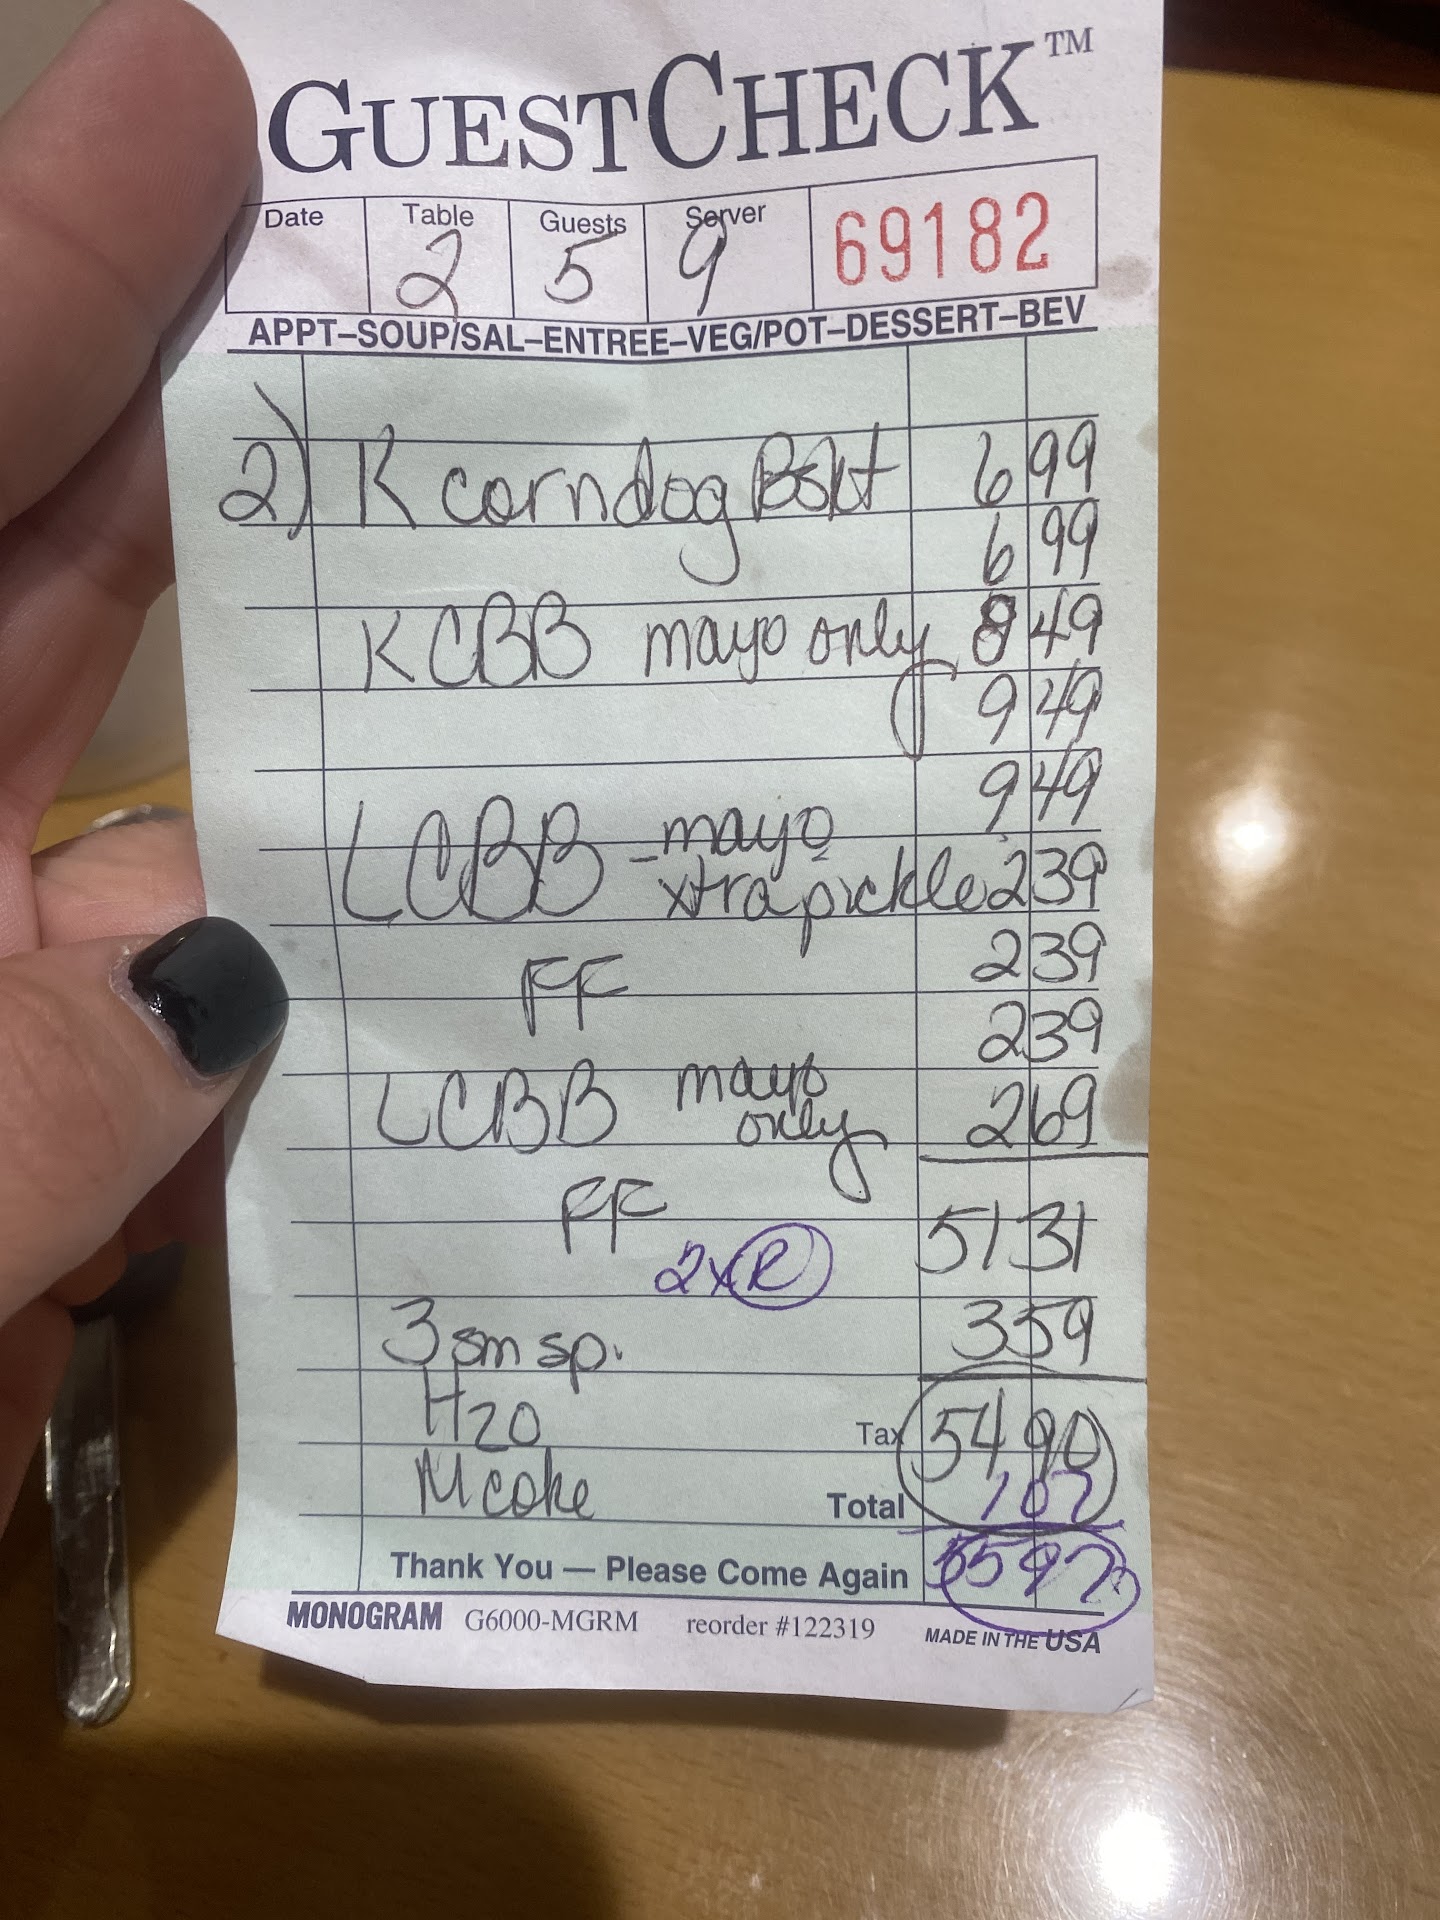 GUESTCHECK™
Date Table Guests Server
2 5 9 69182
APPT–SOUP/SAL–ENTREE–VEG/POT–DESSERT–BEV
2) K corndog 6 99
6 99
KCBB mayo only 8 49
9 49
LCBB - mayo 9 49
xtra pickle 2 39
FF 2 39
2 39
LCBB mayo only 2 69
FF 51 31
2x R
3 sm sp. 3 59
H2O Tax 54 90
M coke Total 1 07
Thank You — Please Come Again 55 97
MONOGRAM G6000-MGRM reorder #122319 MADE IN THE USA